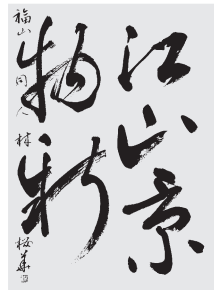 江山景
物新
福山同人 林